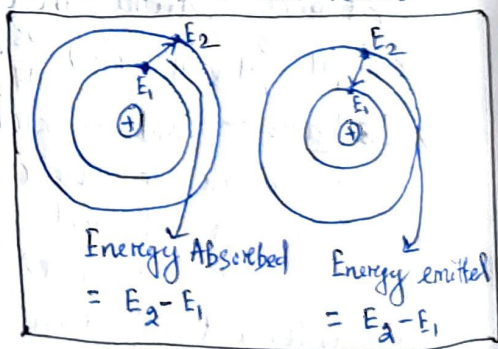 E₂
E₁
+
Energy Absorbed
= E₂ - E₁
E₂
E₁
+
Energy emitted
= E₂ - E₁